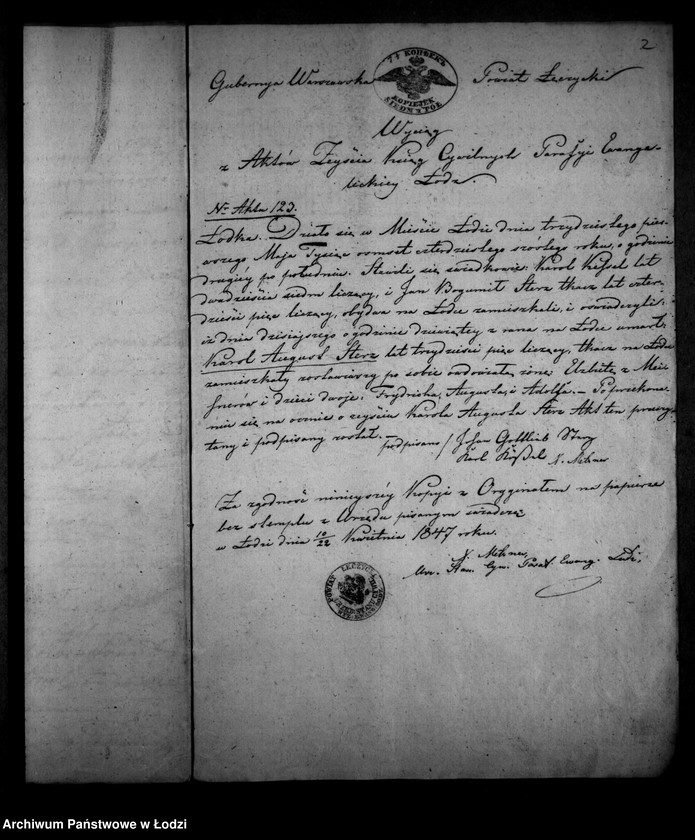 2
7½ КОПѢЕКЪ
KOPIEJEK
SIEDM I PÓŁ
Gubernya Warszawska Powiat Łęczycki
Wyciąg
z Aktów Zeyścia Ksiąg Cywilnych Parafyi Ewange-
lickiey Łodz.
Nr Akta 123.
Łodka. Działo się w Mieście Łodzi dnia trzydziestego pier-
wszego Maja Tysiąc osmset czterdziestego roku, o godzinie
drugiéy po południu. Stawili się świadkowie: Karol Kessel lat
dwadzieścia siedm liczący, i Jan Bogumił Sterz tkacz lat czter-
dzieści pięć liczący, obydwa na Łodce zamieszkali, i oświadczyli,
iż dnia dzisiejszego o godzinie dziewiątey z rana na Łodce umarł,
Karol August Sterz lat trzydzieści pięć liczący, tkacz na Łodce
zamieszkały zostawiwszy po sobie owdowiałą żonę Elżbietę z Mei-
snerów i dzieci dwoje: Frydrika, Augusta, i Adolfa. — Przekona-
nie się na ocznie o zeyściu Karola Augusta Sterz Akt ten przeczy-
tany i podpisany został. — podpisano / Johan Gottlieb Sterz
Karl Käßel X. Metzner
Za zgodność niniejszéy Kopyi z Orygginałem na papierze
bez stempla z Urzędu pisanym świadczę
w Łodzi dnia 10/22 Kwietnia 1847 roku.
X. Metzner
Urz. Stanu Cyw. Paraf. Ewang. Łodzi,
POWIAT ŁĘCZYCKI
Archiwum Państwowe w Łodzi